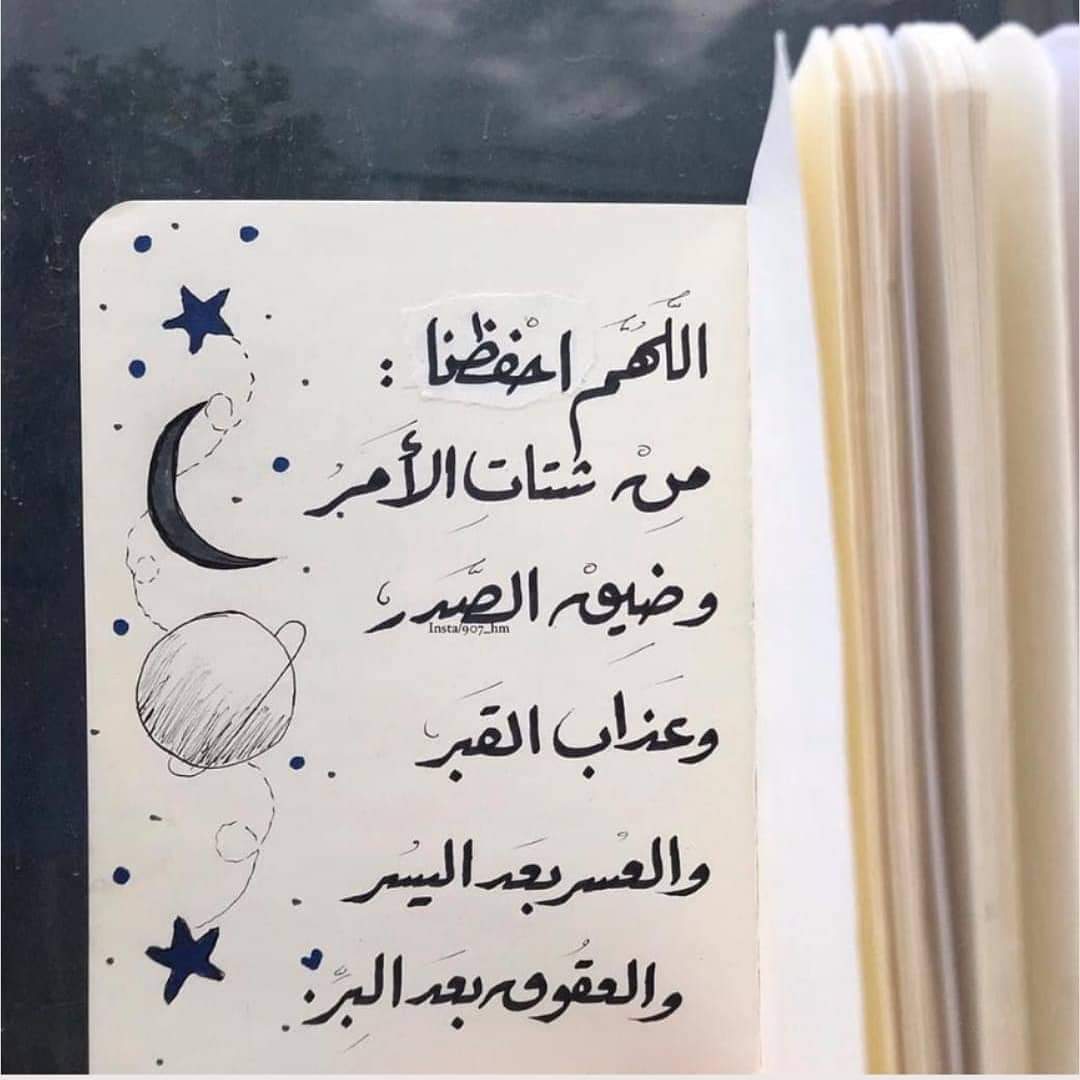 اللَّهُمَّ احْفظنا :
مِنْ شتاتِ الأَمرُ
وضِيقْ الصَّدر
Insta/907_hm
وعذَاب القبَر
والعْسر بعَد اليسُر
والعقُوق بعَد البِرِّ.